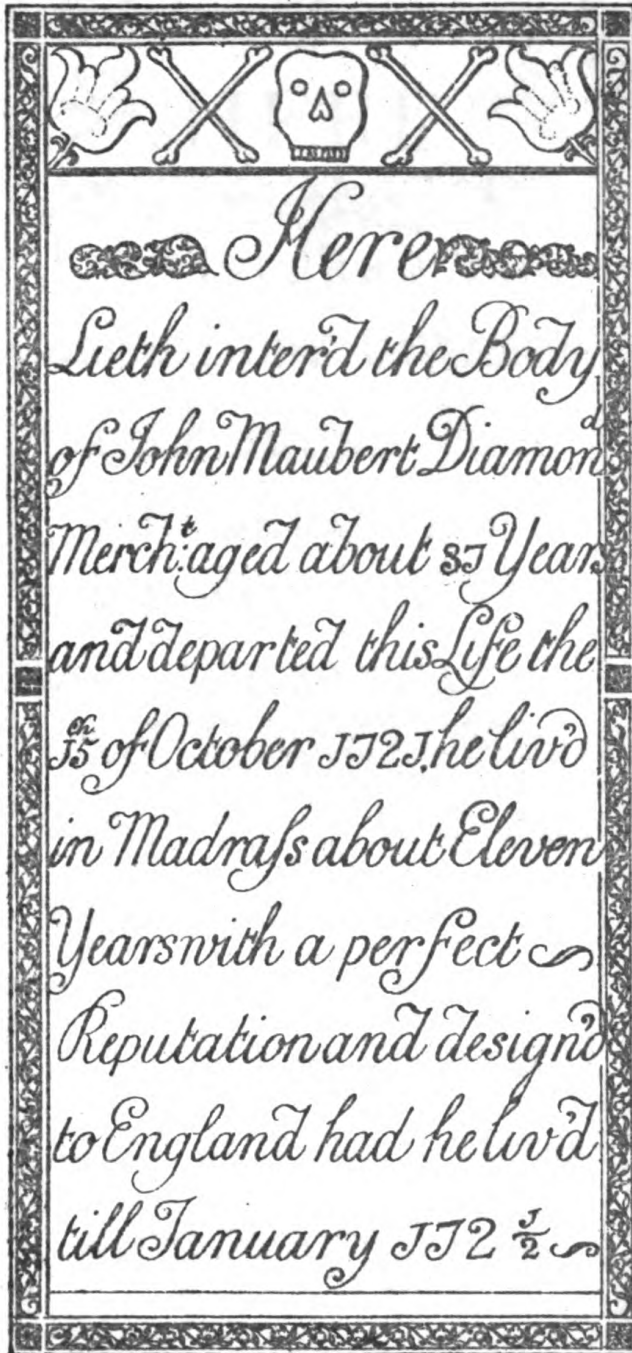 Here
Lieth inter'd the Body
of John Maubert Diamond
Merch:t aged about 37 Years
and departed this Life the
15th of October 1721, he liv'd
in Madraſs about Eleven
Years with a perfect
Reputation and design'd
to England had he liv'd
till January 172 1/2